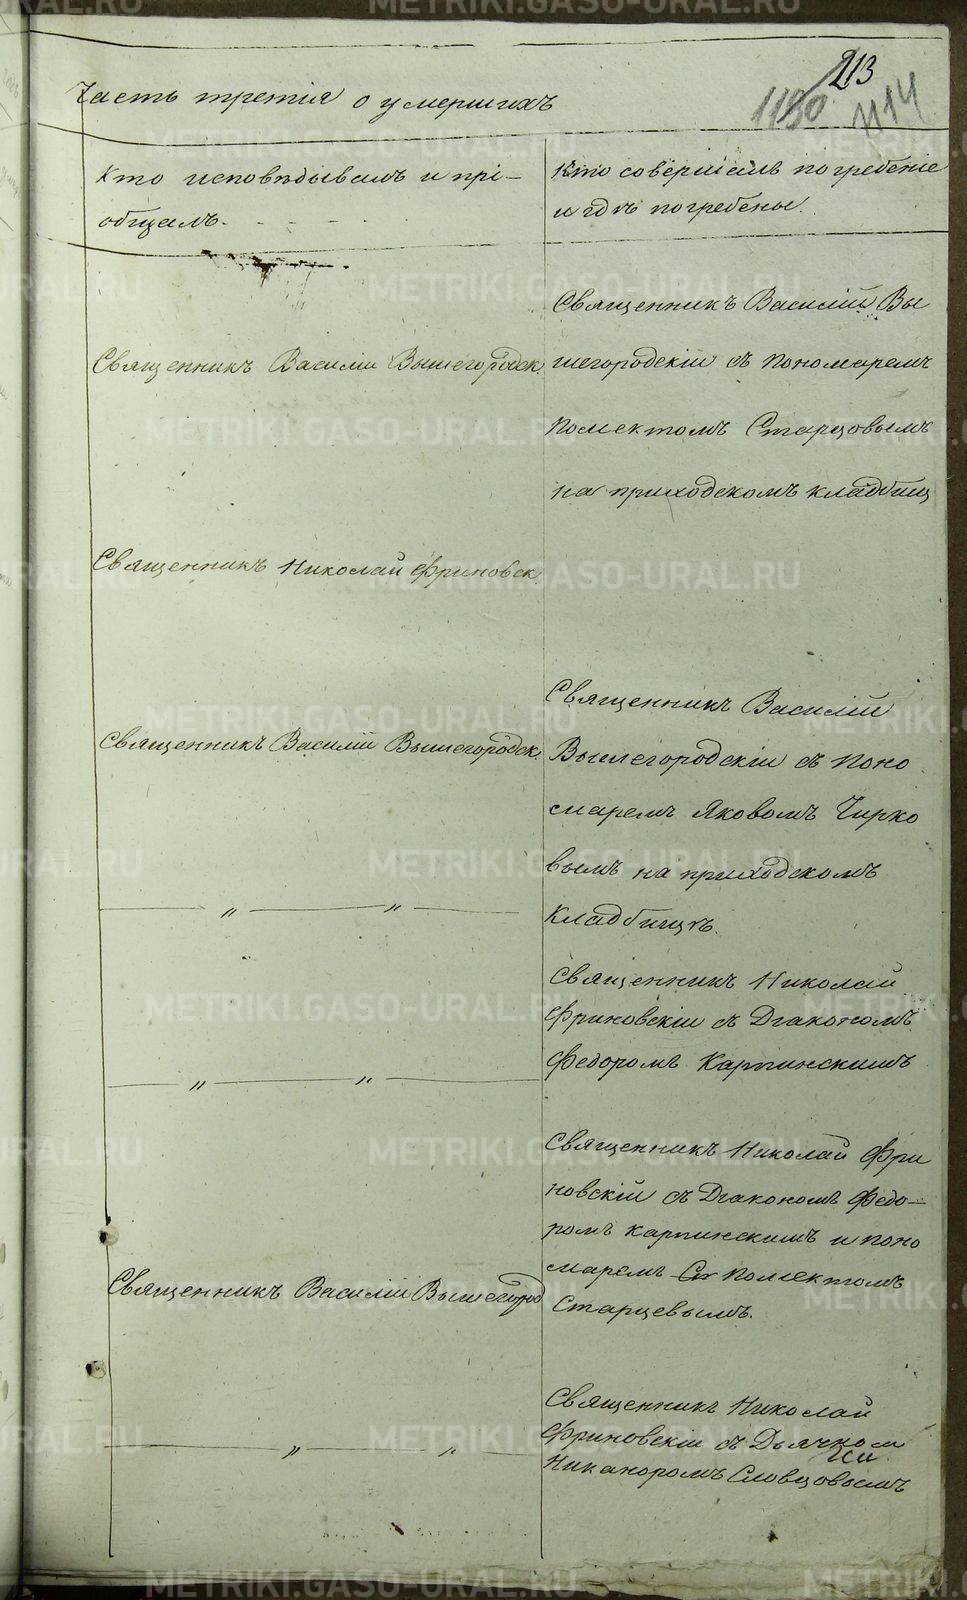 213
1180 1114
Часть третія о умершихъ
Кто исповѣдывалъ и прі-
общалъ.
Кто совершалъ погребеніе
и гдѣ погребены.
Священникъ Василій Вышегородск
Священникъ Василій Вы
шегородскій съ пономаремъ
Полектомъ Старцовымъ
на приходскомъ кладбищ
Священникъ Николай Фриновск
Священникъ Василій Вышегородск.
Священникъ Василій
Вышегородскій съ поно
маремъ Яковомъ Чирко
вымъ на приходскомъ
кладбищѣ.
— „ — „ —
Священникъ Николай
Фриновскій съ Діакономъ
Федоромъ Карпинскимъ
— „ — „ —
Священникъ Николай Фри
новскій съ Діакономъ Федо-
ромъ Карпинскимъ и поно
маремъ Ст Полектомъ
Старцевымъ.
Священникъ Василій Вышегород
Священникъ Николай
Фриновскій съ Дьячком
Никаноромъ Словцовымъ
— „ — „ —
METRIKI.GASO-URAL.RU